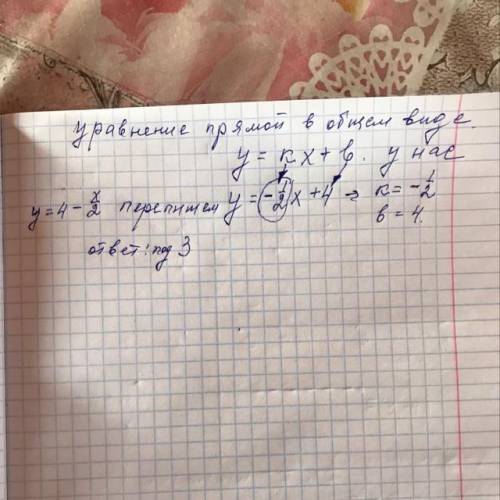 уравнение прямой в общем виде.
y = кx + b. у нас
y = 4 - x/2 перепишем y = -1/2 x + 4 ⇒ к = -1/2
в = 4.
ответ: под 3